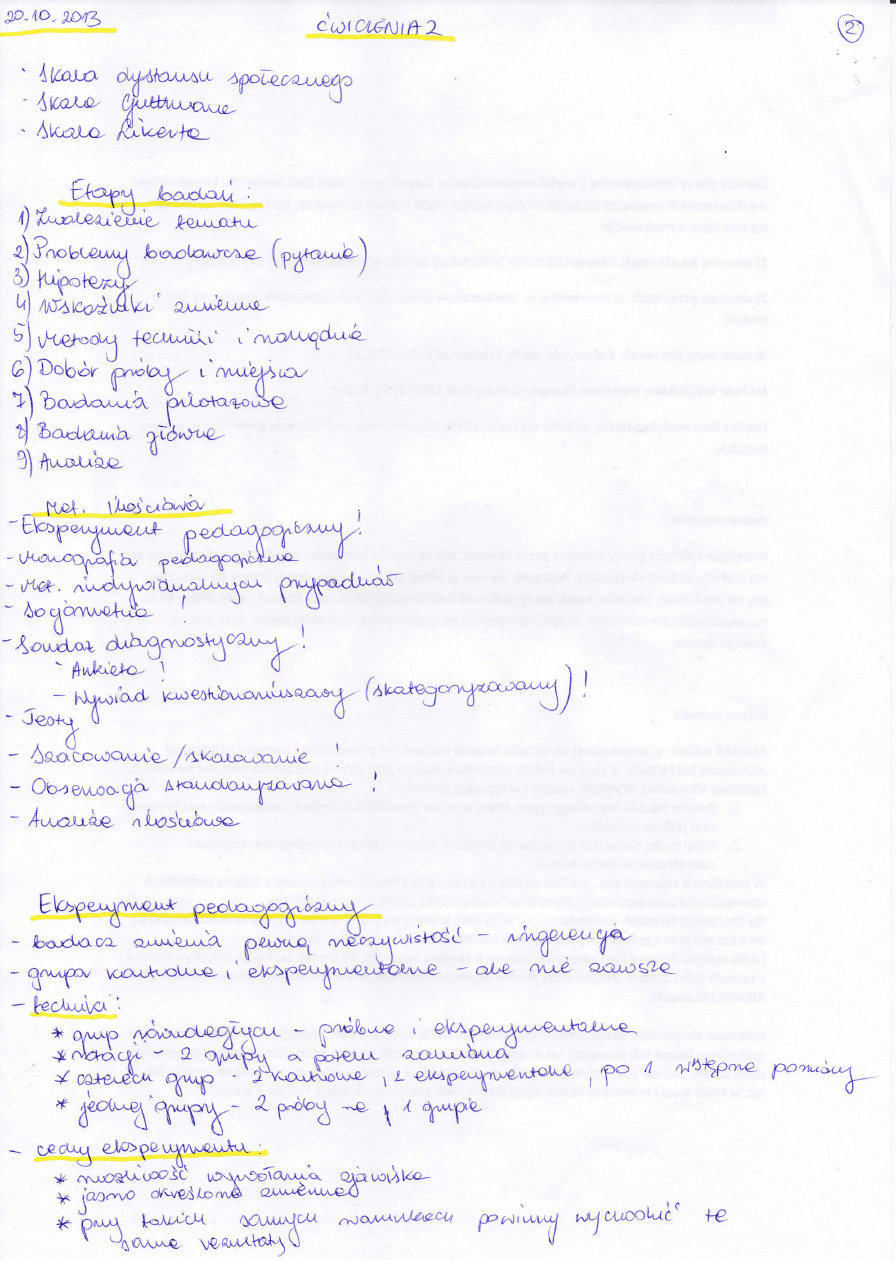 20.10.2013
ĆWICZENIA 2
2
· Skala dystansu społecznego
· Skala Guttmana
· Skala Likerta
Etapy badań:
1) Znalezienie tematu
2) Problemy badawcze (pytania)
3) Hipotezy
4) Wskaźniki zmienne
5) Metody techniki i narzędzia
6) Dobór próby i miejsca
7) Badania pilotażowe
8) Badania główne
9) Analiza
Met. ilościowa
- Eksperyment pedagogiczny!
- Monografia pedagogiczna
- Met. indywidualnych przypadków
- Socjometria
- Sondaż diagnostyczny!
· Ankieta!
- Wywiad kwestionariuszowy (skategoryzowany)!
- Testy
- Szacowanie/skalowanie!
- Obserwacja standaryzowana!
- Analiza ilościowa
Eksperyment pedagogiczny
- badacz zmienia pewną rzeczywistość - ingerencja
- grupa kontrolna i eksperymentalna - ale nie zawsze
- techniki:
* grup równoległych - próbna i eksperymentalna
* rotacji - 2 grupy a potem zamiana
* czterech grup - 2 kontrolne, 2 eksperymentalne, po 1 wstępne pomiary
* jednej grupy - 2 próby na 1 grupie
- cechy eksperymentu:
* możliwość wywołania zjawiska
* jasno określone zmienne
* przy takich samych warunkach powinny wychodzić te
same rezultaty